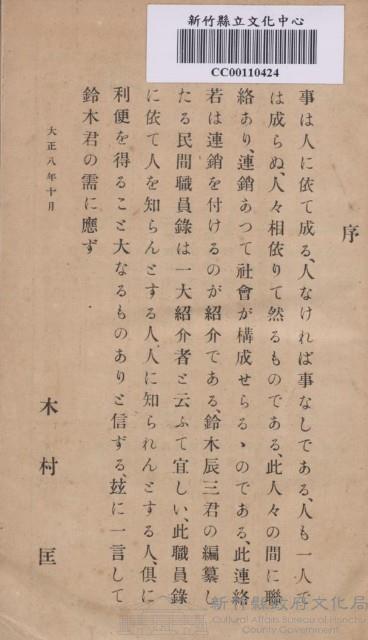 新竹縣立文化中心
CC00110424
序
事は人に依て成る、人なければ事なしである、人も一人で
は成らぬ、人々相依りて然るものである、此人々の間に聯
絡あり、連銷あつて社會が構成せらるゝのである、此連絡
若は連銷を付けるのが紹介である、鈴木辰三君の編纂し
たる民間職員錄は一大紹介者と云ふて宜しい、此職員錄
に依て人を知らんとする人、人に知られんとする人、俱に
利便を得ること大なるものありと信ずる、玆に一言して
鈴木君の需に應ず
大正八年十月
木村匡
新竹縣政府文化局
Cultural Affairs Bureau of Hsinchu
County Government